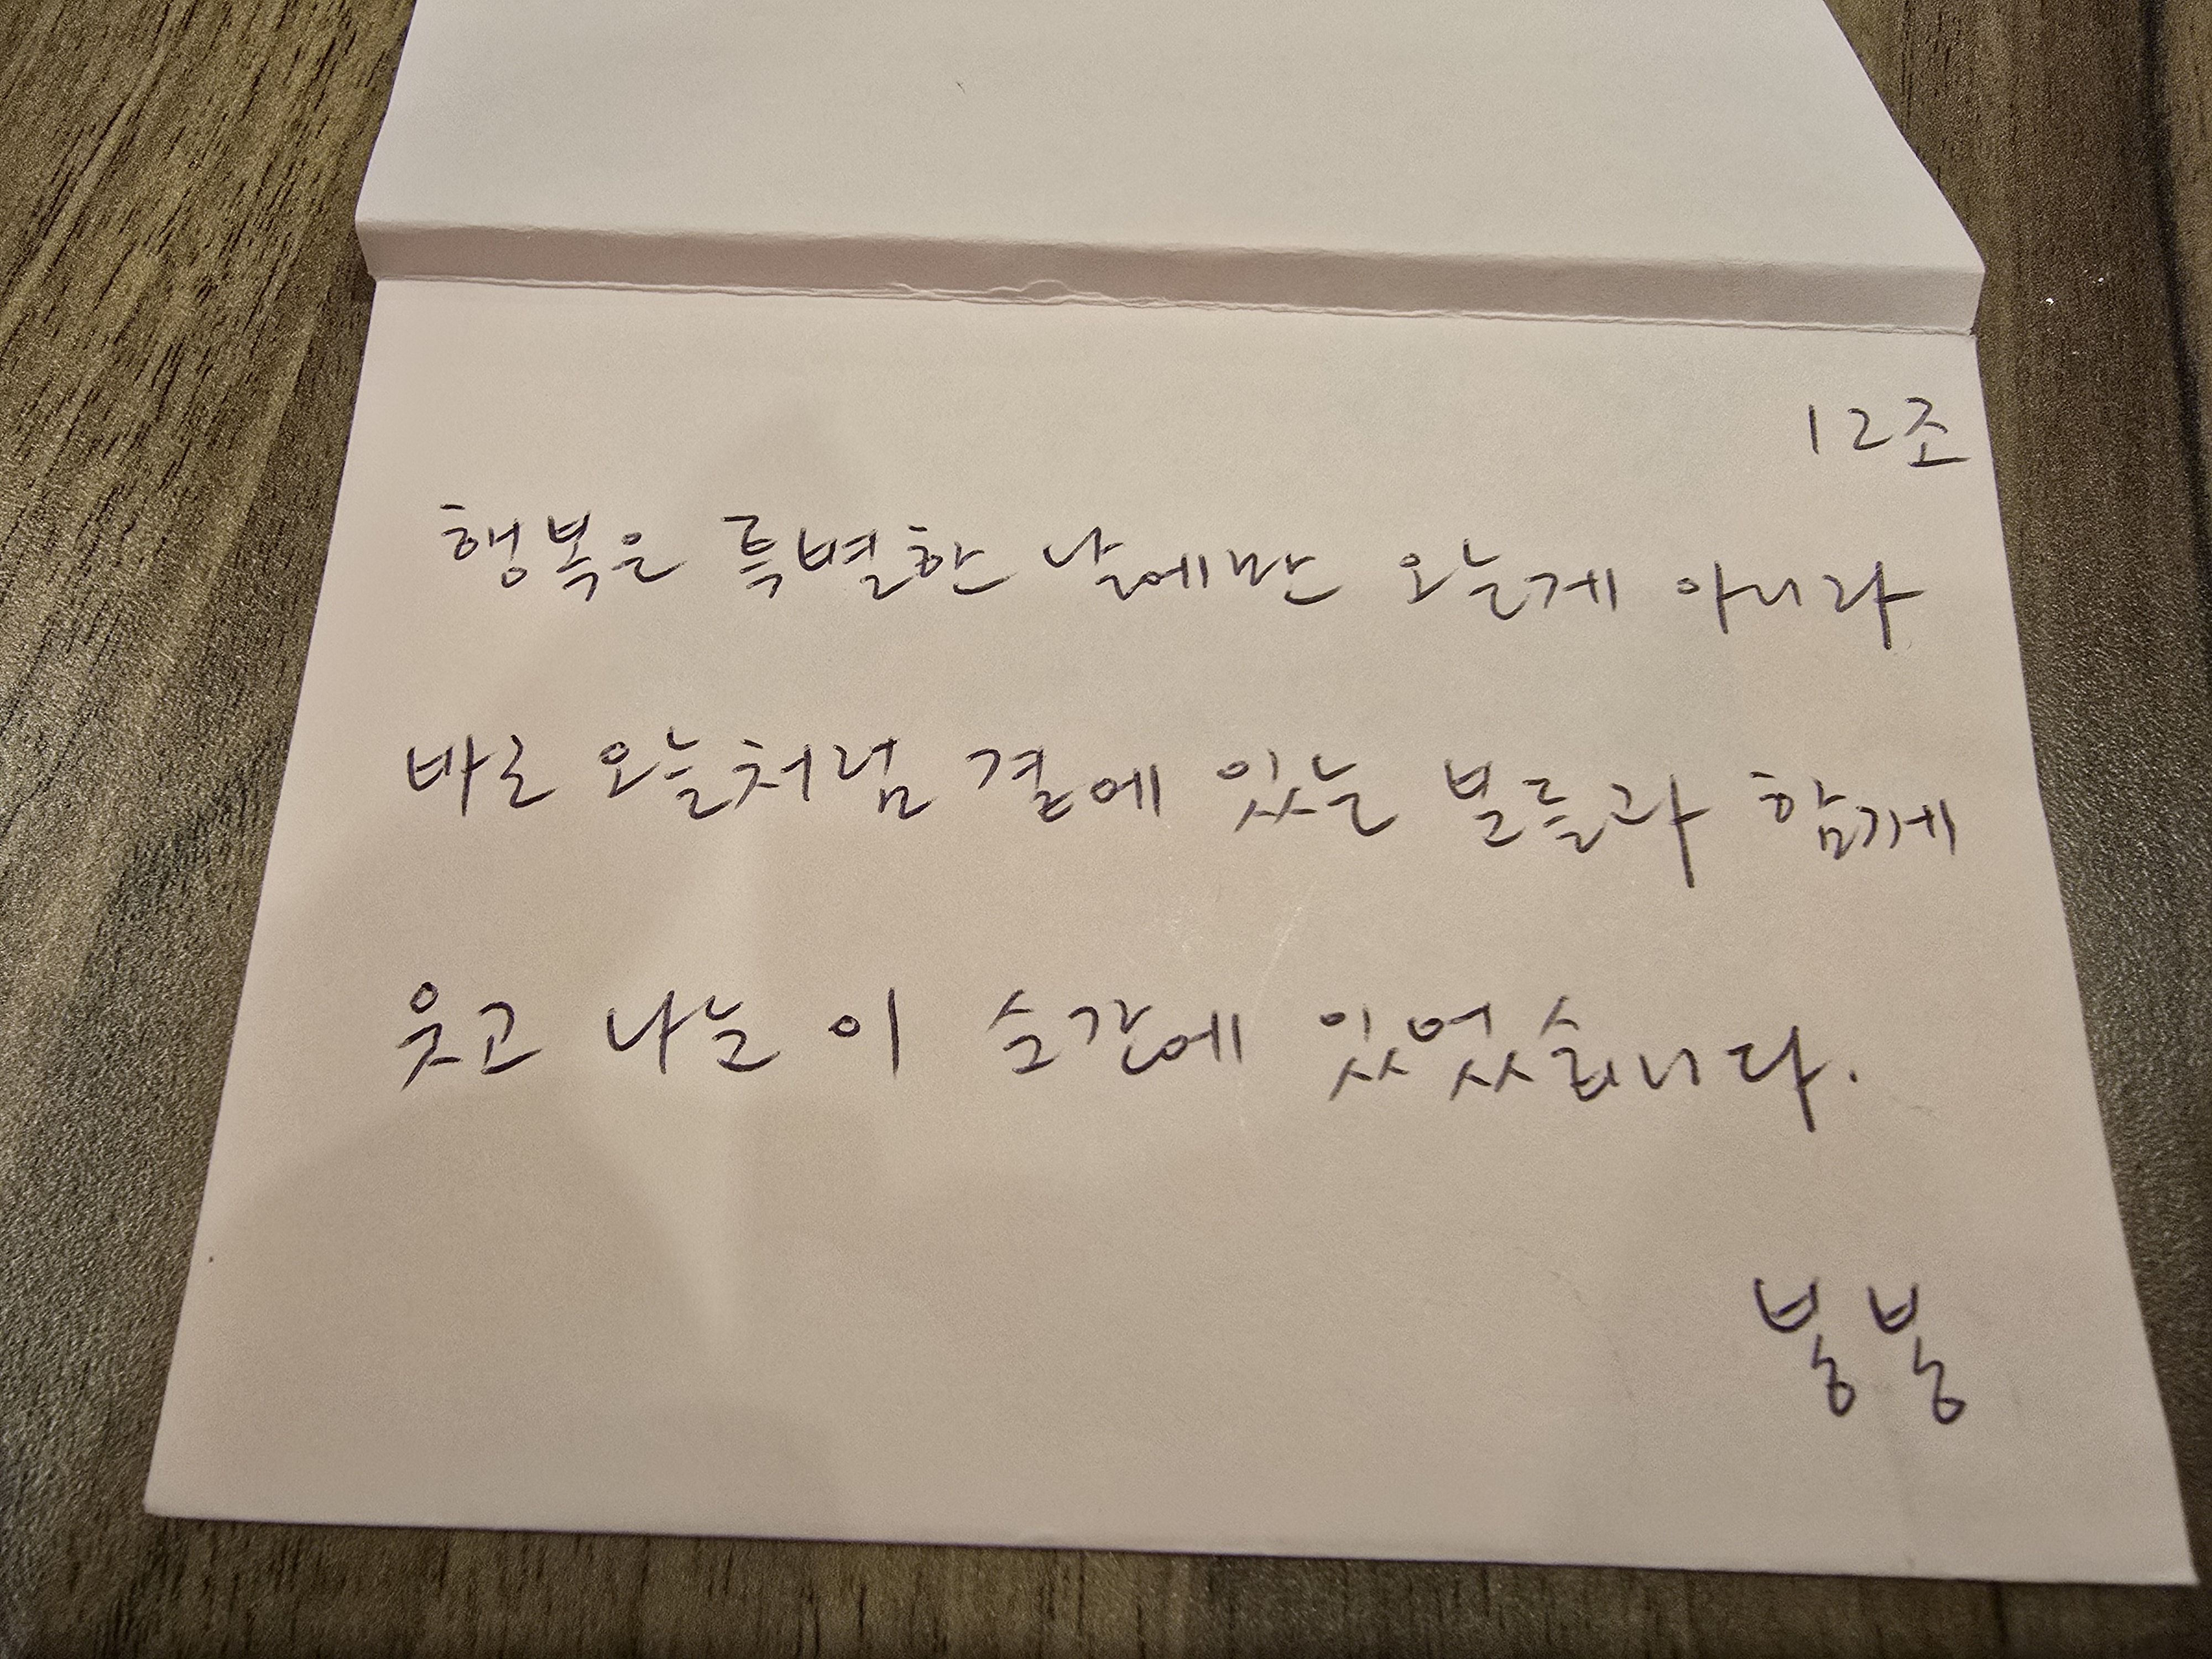 12조
행복은 특별한 날에만 오는게 아니라
바로 오늘처럼 곁에 있는 분들과 함께
웃고 나눈 이 순간에 있었습니다.
봉봉